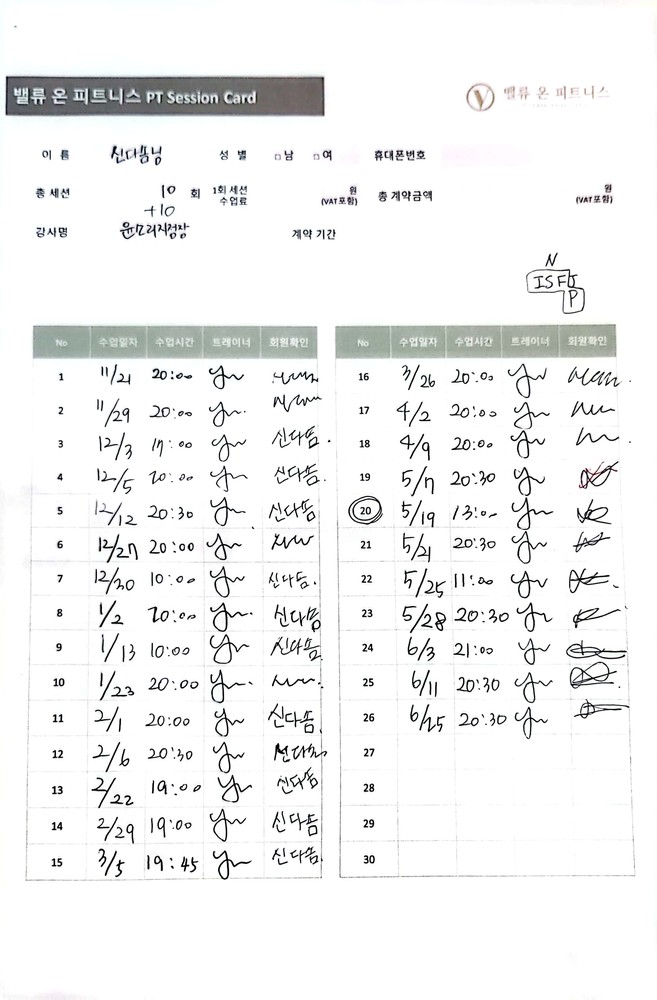 밸류 온 피트니스 PT Session Card
밸류 온 피트니스
이 름 신다솜님 성 별 □남 □여 휴대폰번호
총 세션 10 회 1회 세션 수업료 원 (VAT포함) 총 계약금액 원 (VAT포함)
+10
강사명 윤모리지점장 계약 기간
N
ISFJ
P
No 수업일자 수업시간 트레이너 회원확인
1 11/21 20:00
2 11/29 20:00
3 12/3 17:00 신다솜
4 12/5 20:00 신다솜
5 12/12 20:30 신다솜
6 12/27 20:00
7 12/30 10:00 신다솜
8 1/2 20:00 신다솜
9 1/13 10:00 신다솜
10 1/23 20:00
11 2/1 20:00 신다솜
12 2/6 20:30 신다솜
13 2/22 19:00 신다솜
14 2/29 19:00 신다솜
15 3/5 19:45 신다솜
No 수업일자 수업시간 트레이너 회원확인
16 3/26 20:00
17 4/2 20:00
18 4/9 20:00
19 5/7 20:30
20 5/19 13:00
21 5/21 20:30
22 5/25 11:00
23 5/28 20:30
24 6/3 21:00
25 6/11 20:30
26 6/25 20:30
27
28
29
30